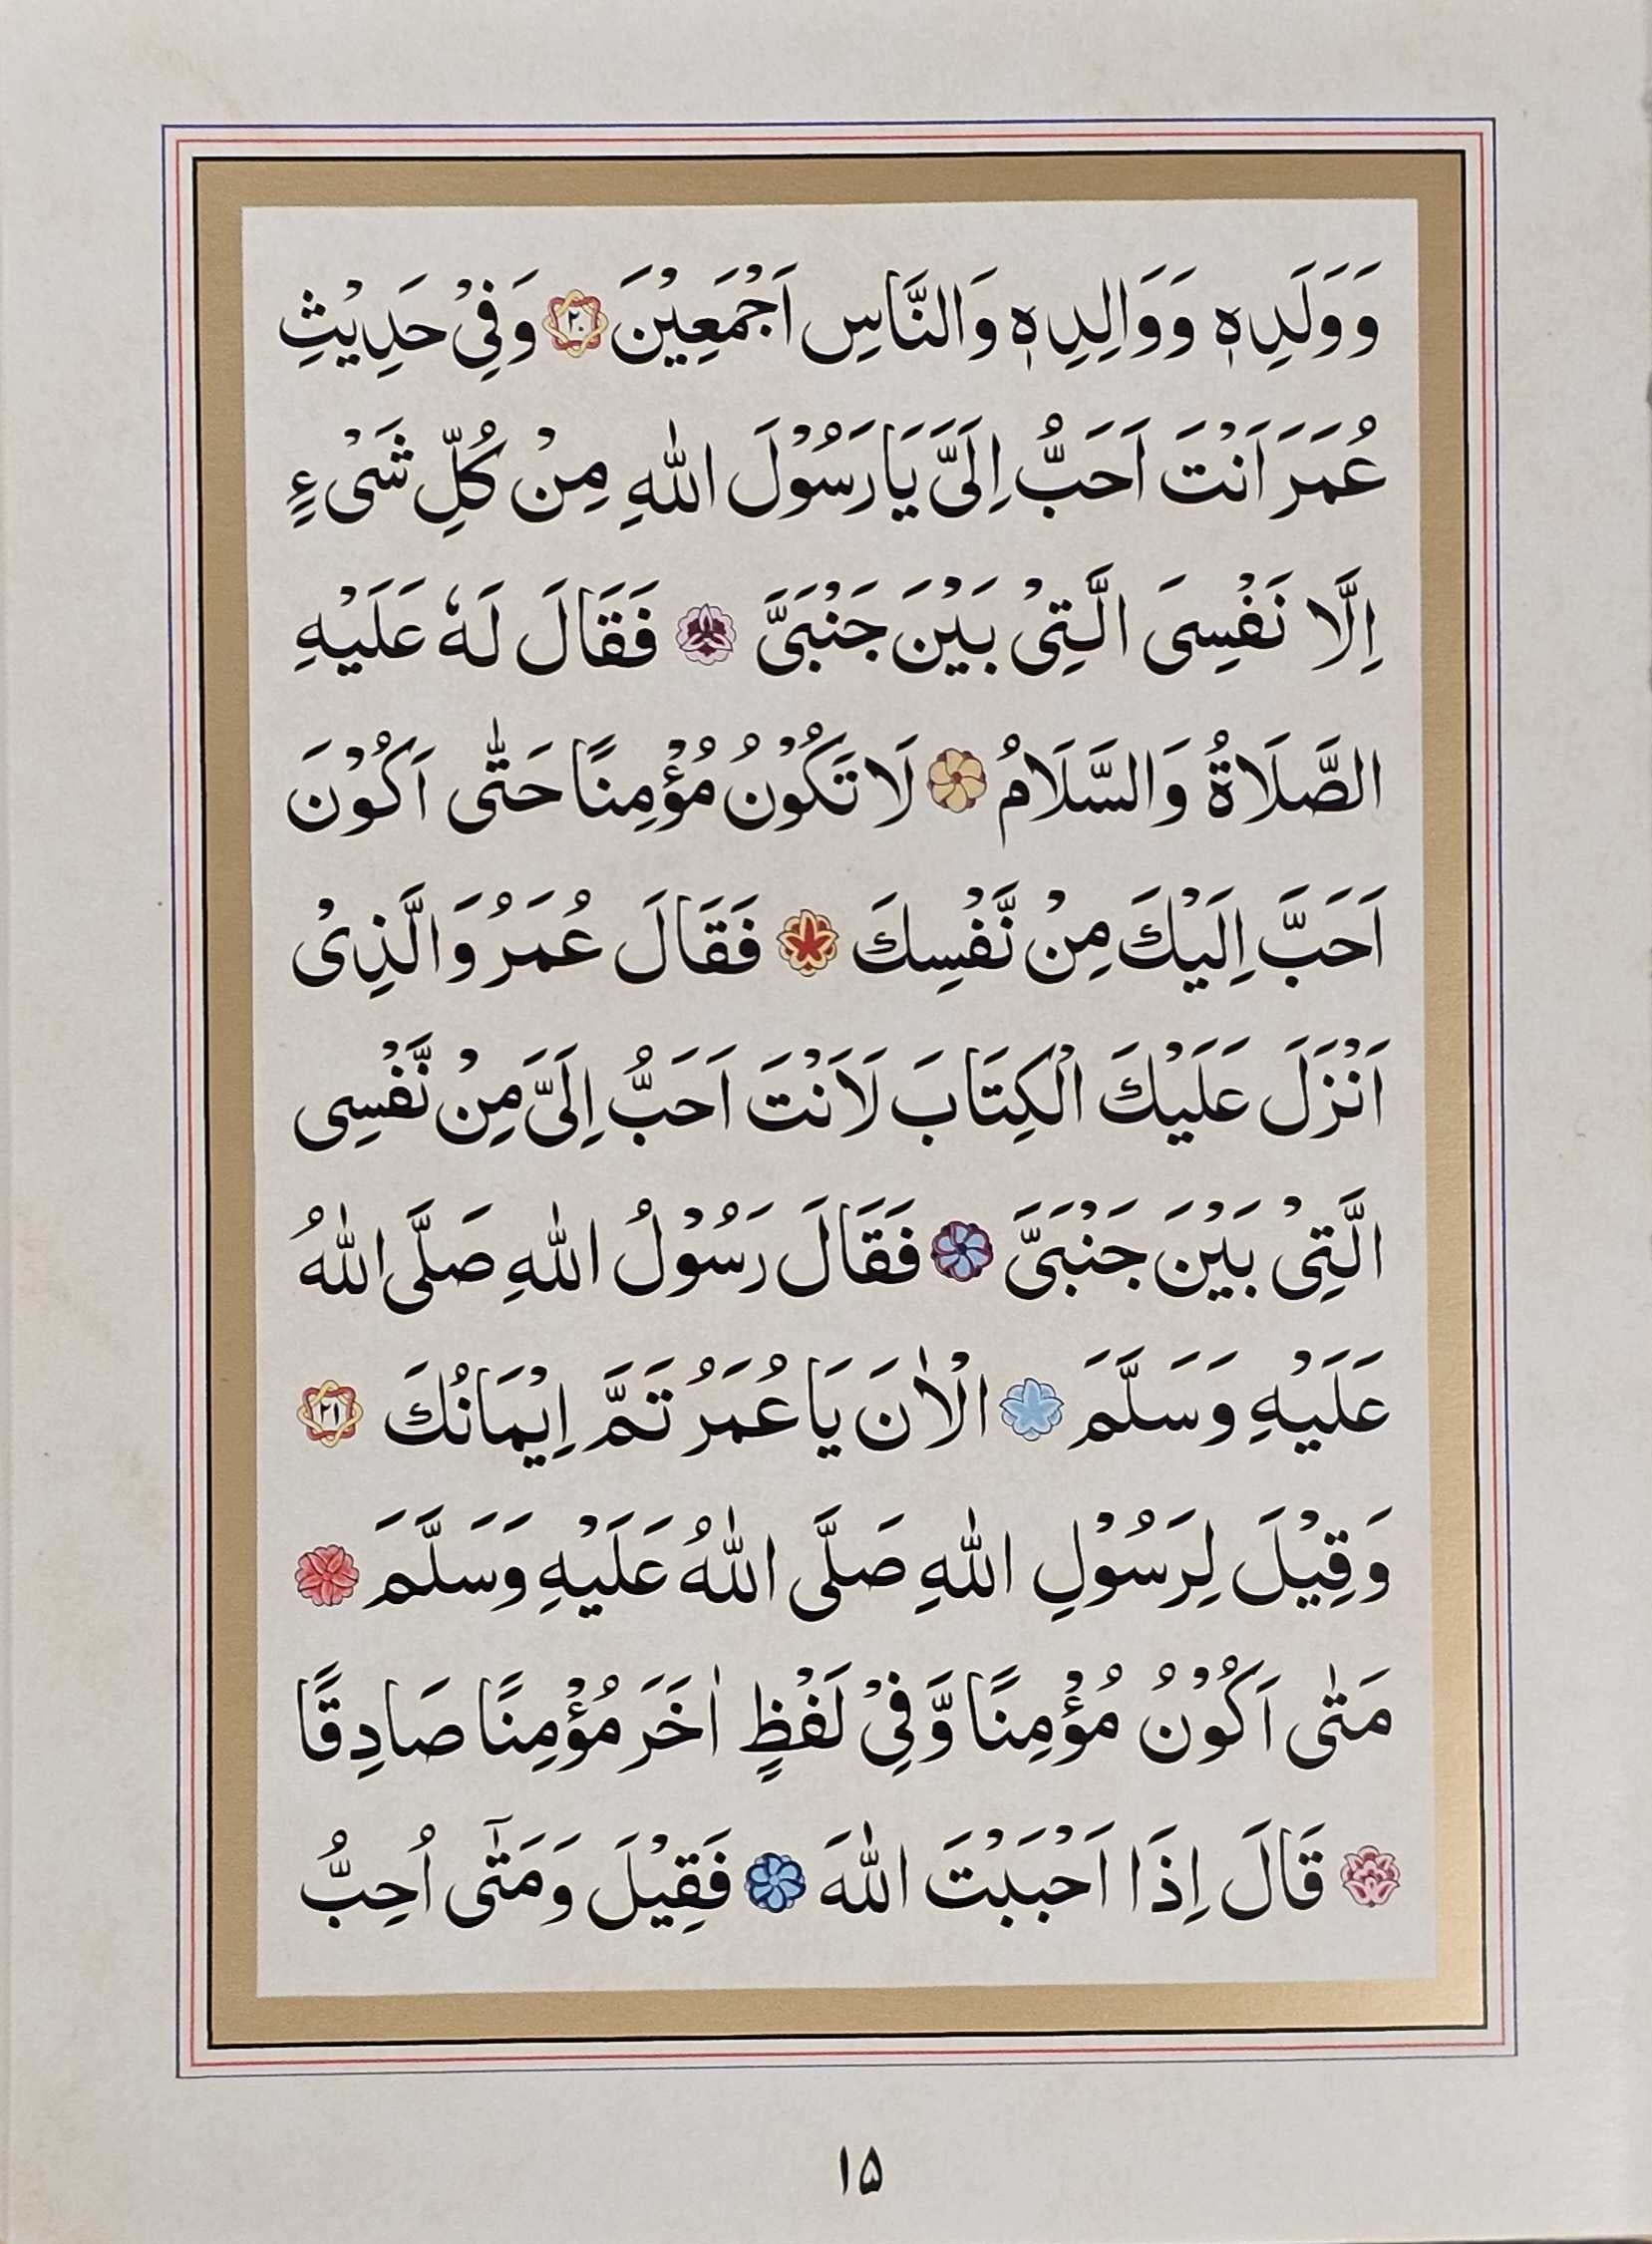 وَوَلَدِهٖ وَوَالِدِهٖ وَالنَّاسِ اَجْمَعِيْنَ ۲۰ وَفِيْ حَدِيْثِ
عُمَرَ اَنْتَ اَحَبُّ اِلَيَّ يَا رَسُوْلَ اللّٰهِ مِنْ كُلِّ شَيْءٍ
اِلَّا نَفْسِىَ الَّتِىْ بَيْنَ جَنْبَىَّ فَقَالَ لَهٗ عَلَيْهِ
الصَّلَاةُ وَالسَّلَامُ لَا تَكُوْنُ مُؤْمِنًا حَتّٰى اَكُوْنَ
اَحَبَّ اِلَيْكَ مِنْ نَّفْسِكَ فَقَالَ عُمَرُ وَالَّذِىْ
اَنْزَلَ عَلَيْكَ الْكِتَابَ لَاَنْتَ اَحَبُّ اِلَىَّ مِنْ نَّفْسِى
الَّتِىْ بَيْنَ جَنْبَىَّ فَقَالَ رَسُوْلُ اللّٰهِ صَلَّى اللّٰهُ
عَلَيْهِ وَسَلَّمَ الْاٰنَ يَا عُمَرُ تَمَّ اِيْمَانُكَ ۲۱
وَقِيْلَ لِرَسُوْلِ اللّٰهِ صَلَّى اللّٰهُ عَلَيْهِ وَسَلَّمَ
مَتٰى اَكُوْنُ مُؤْمِنًا وَّفِىْ لَفْظٍ اٰخَرَ مُؤْمِنًا صَادِقًا
قَالَ اِذَا اَحْبَبْتَ اللّٰهَ فَقِيْلَ وَمَتٰٓى اُحِبُّ
۱۵